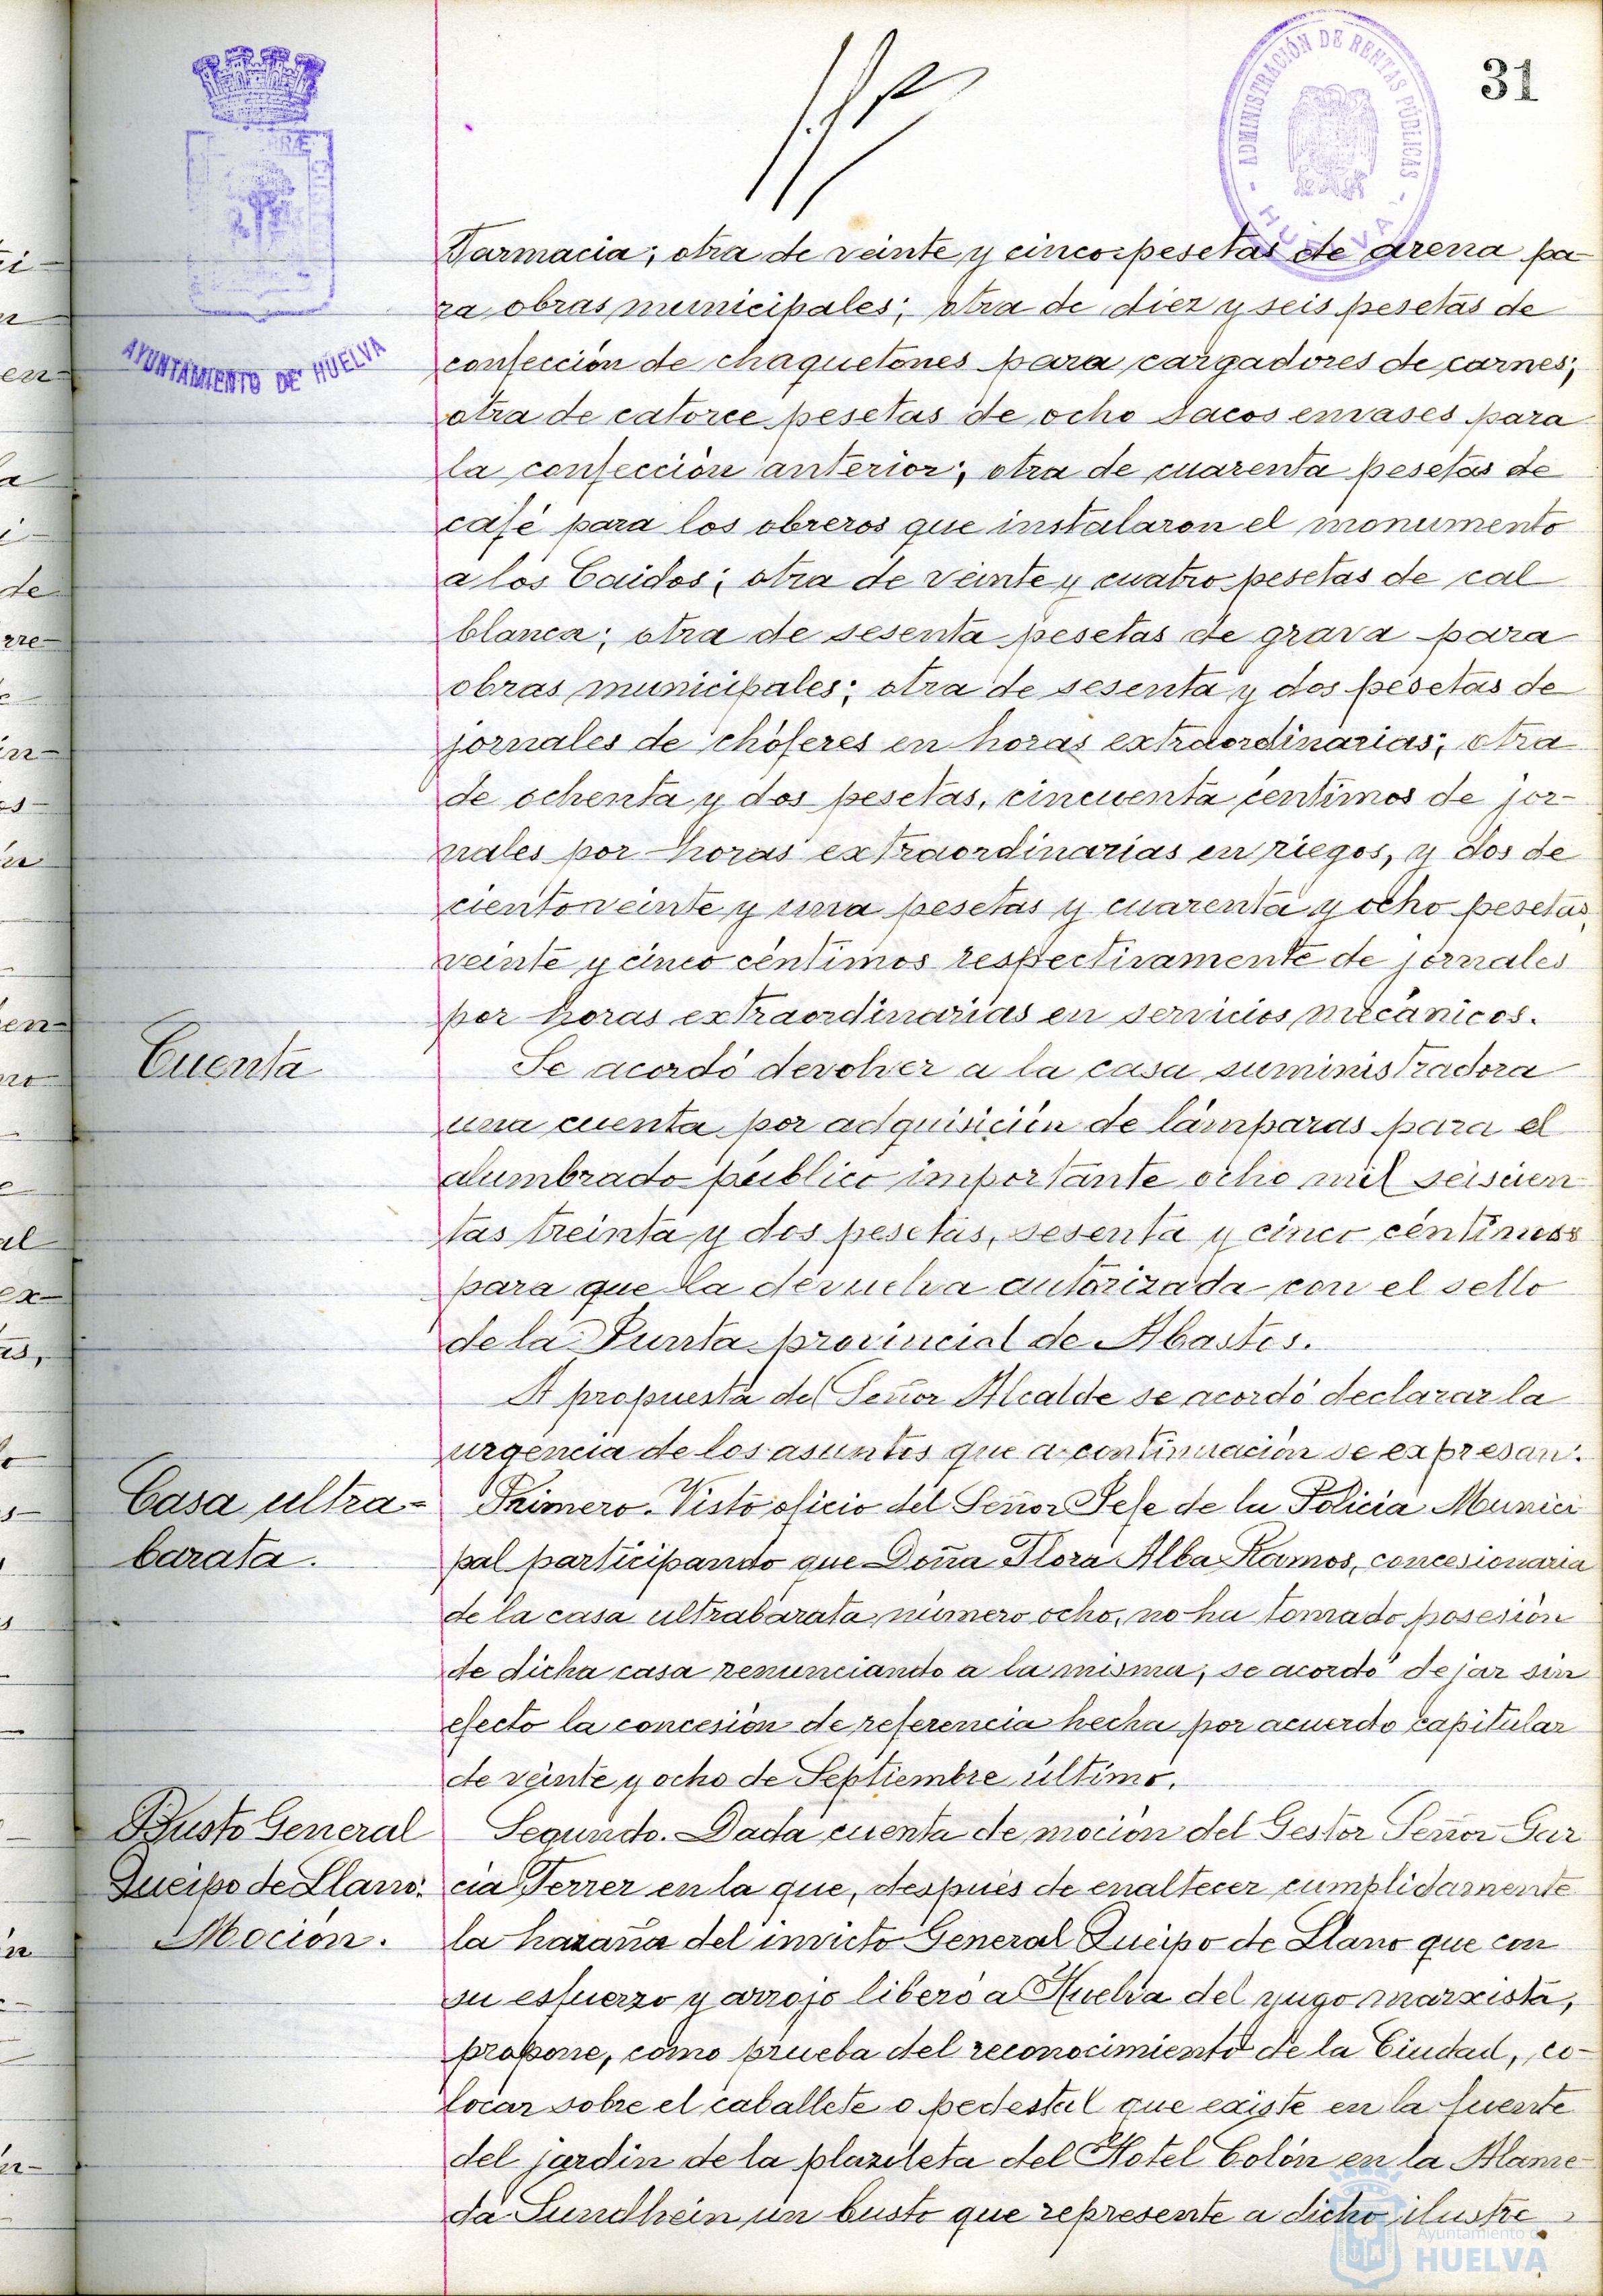 31
ADMINISTRACIÓN DE RENTAS PÚBLICAS
HUELVA
AYUNTAMIENTO DE HUELVA
Farmacia; otra de veinte y cinco pesetas de arena pa-
ra obras municipales; otra de diez y seis pesetas de
confección de chaquetones para cargadores de carnes;
otra de catorce pesetas de ocho sacos envases para
la confección anterior; otra de cuarenta pesetas de
café para los obreros que instalaron el monumento
a los Caidos; otra de veinte y cuatro pesetas de cal
blanca; otra de sesenta pesetas de grava para
obras municipales; otra de sesenta y dos pesetas de
jornales de chóferes en horas extraordinarias; otra
de ochenta y dos pesetas, cincuenta céntimos de jor-
nales por horas extraordinarias en riegos, y dos de
ciento veinte y una pesetas y cuarenta y ocho pesetas,
veinte y cinco céntimos respectivamente de jornales
por horas extraordinarias en servicios mecánicos.
Cuenta
Se acordó devolver a la casa suministradora
una cuenta por adquisición de lámparas para el
alumbrado público importante ocho mil seiscien
tas treinta y dos pesetas, sesenta y cinco céntimos
para que la devuelva autorizada con el sello
de la Junta provincial de Abastos.
A propuesta del Señor Alcalde se acordó declarar la
urgencia de los asuntos que a continuación se expresan:
Casa ultra-
barata.
Primero. Visto oficio del Señor Jefe de la Policia Munici
pal participando que Doña Flora Alba Ramos, concesionaria
de la casa ultrabarata número ocho, no ha tomado posesión
de dicha casa renunciando a la misma; se acordó dejar sin
efecto la concesión de referencia hecha por acuerdo capitular
de veinte y ocho de Septiembre último.
Busto General
Queipo de Llano.
Moción.
Segundo. Dada cuenta de moción del Gestor Señor Gar
cia Ferrer en la que, después de enaltecer cumplidamente
la hazaña del invicto General Queipo de Llano que con
su esfuerzo y arrojo liberó a Huelva del yugo marxista,
propone, como prueba del reconocimiento de la Ciudad, co-
locar sobre el caballete o pedestal que existe en la fuente
del jardin de la plazileta del Hotel Colón en la Alame-
da Sundhein un busto que represente a dicho ilustre
Ayuntamiento de
HUELVA